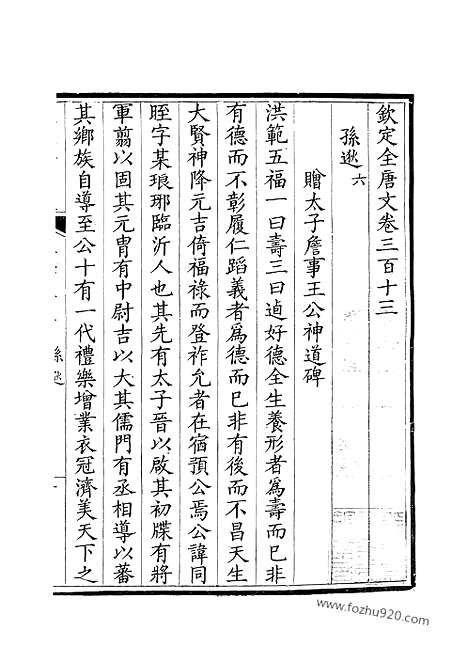 欽定全唐文卷三百十三
孫逖 六
贈太子詹事王公神道碑
洪範五福一曰壽三曰逌好德全生養形者為壽而已非
有德而不彰履仁蹈義者為德而已非有後而不昌天生
大賢神降元吉倚福祿而登祚允者在宿預公焉公諱同
晊字某琅邪臨沂人也其先有太子晉以啟其初牒有將
軍翦以固其元冑有中尉吉以大其儒門有丞相導以蕃
其鄉族自導至公十有一代禮樂增業衣冠濟美天下之
孫逖
www.fozhu920.com